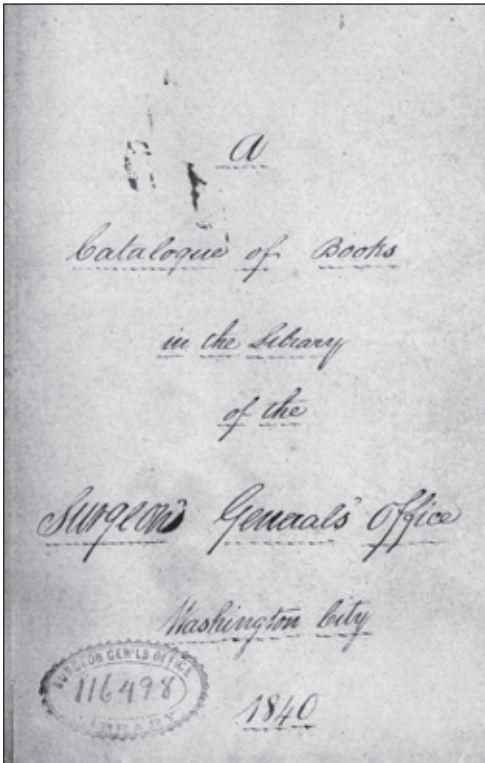 A
Catalogue of Books
in the Library
of the
Surgeon's Generals' Office
Washington City
1840
SURGEON GEN'LS OFFICE
116498
LIBRARY